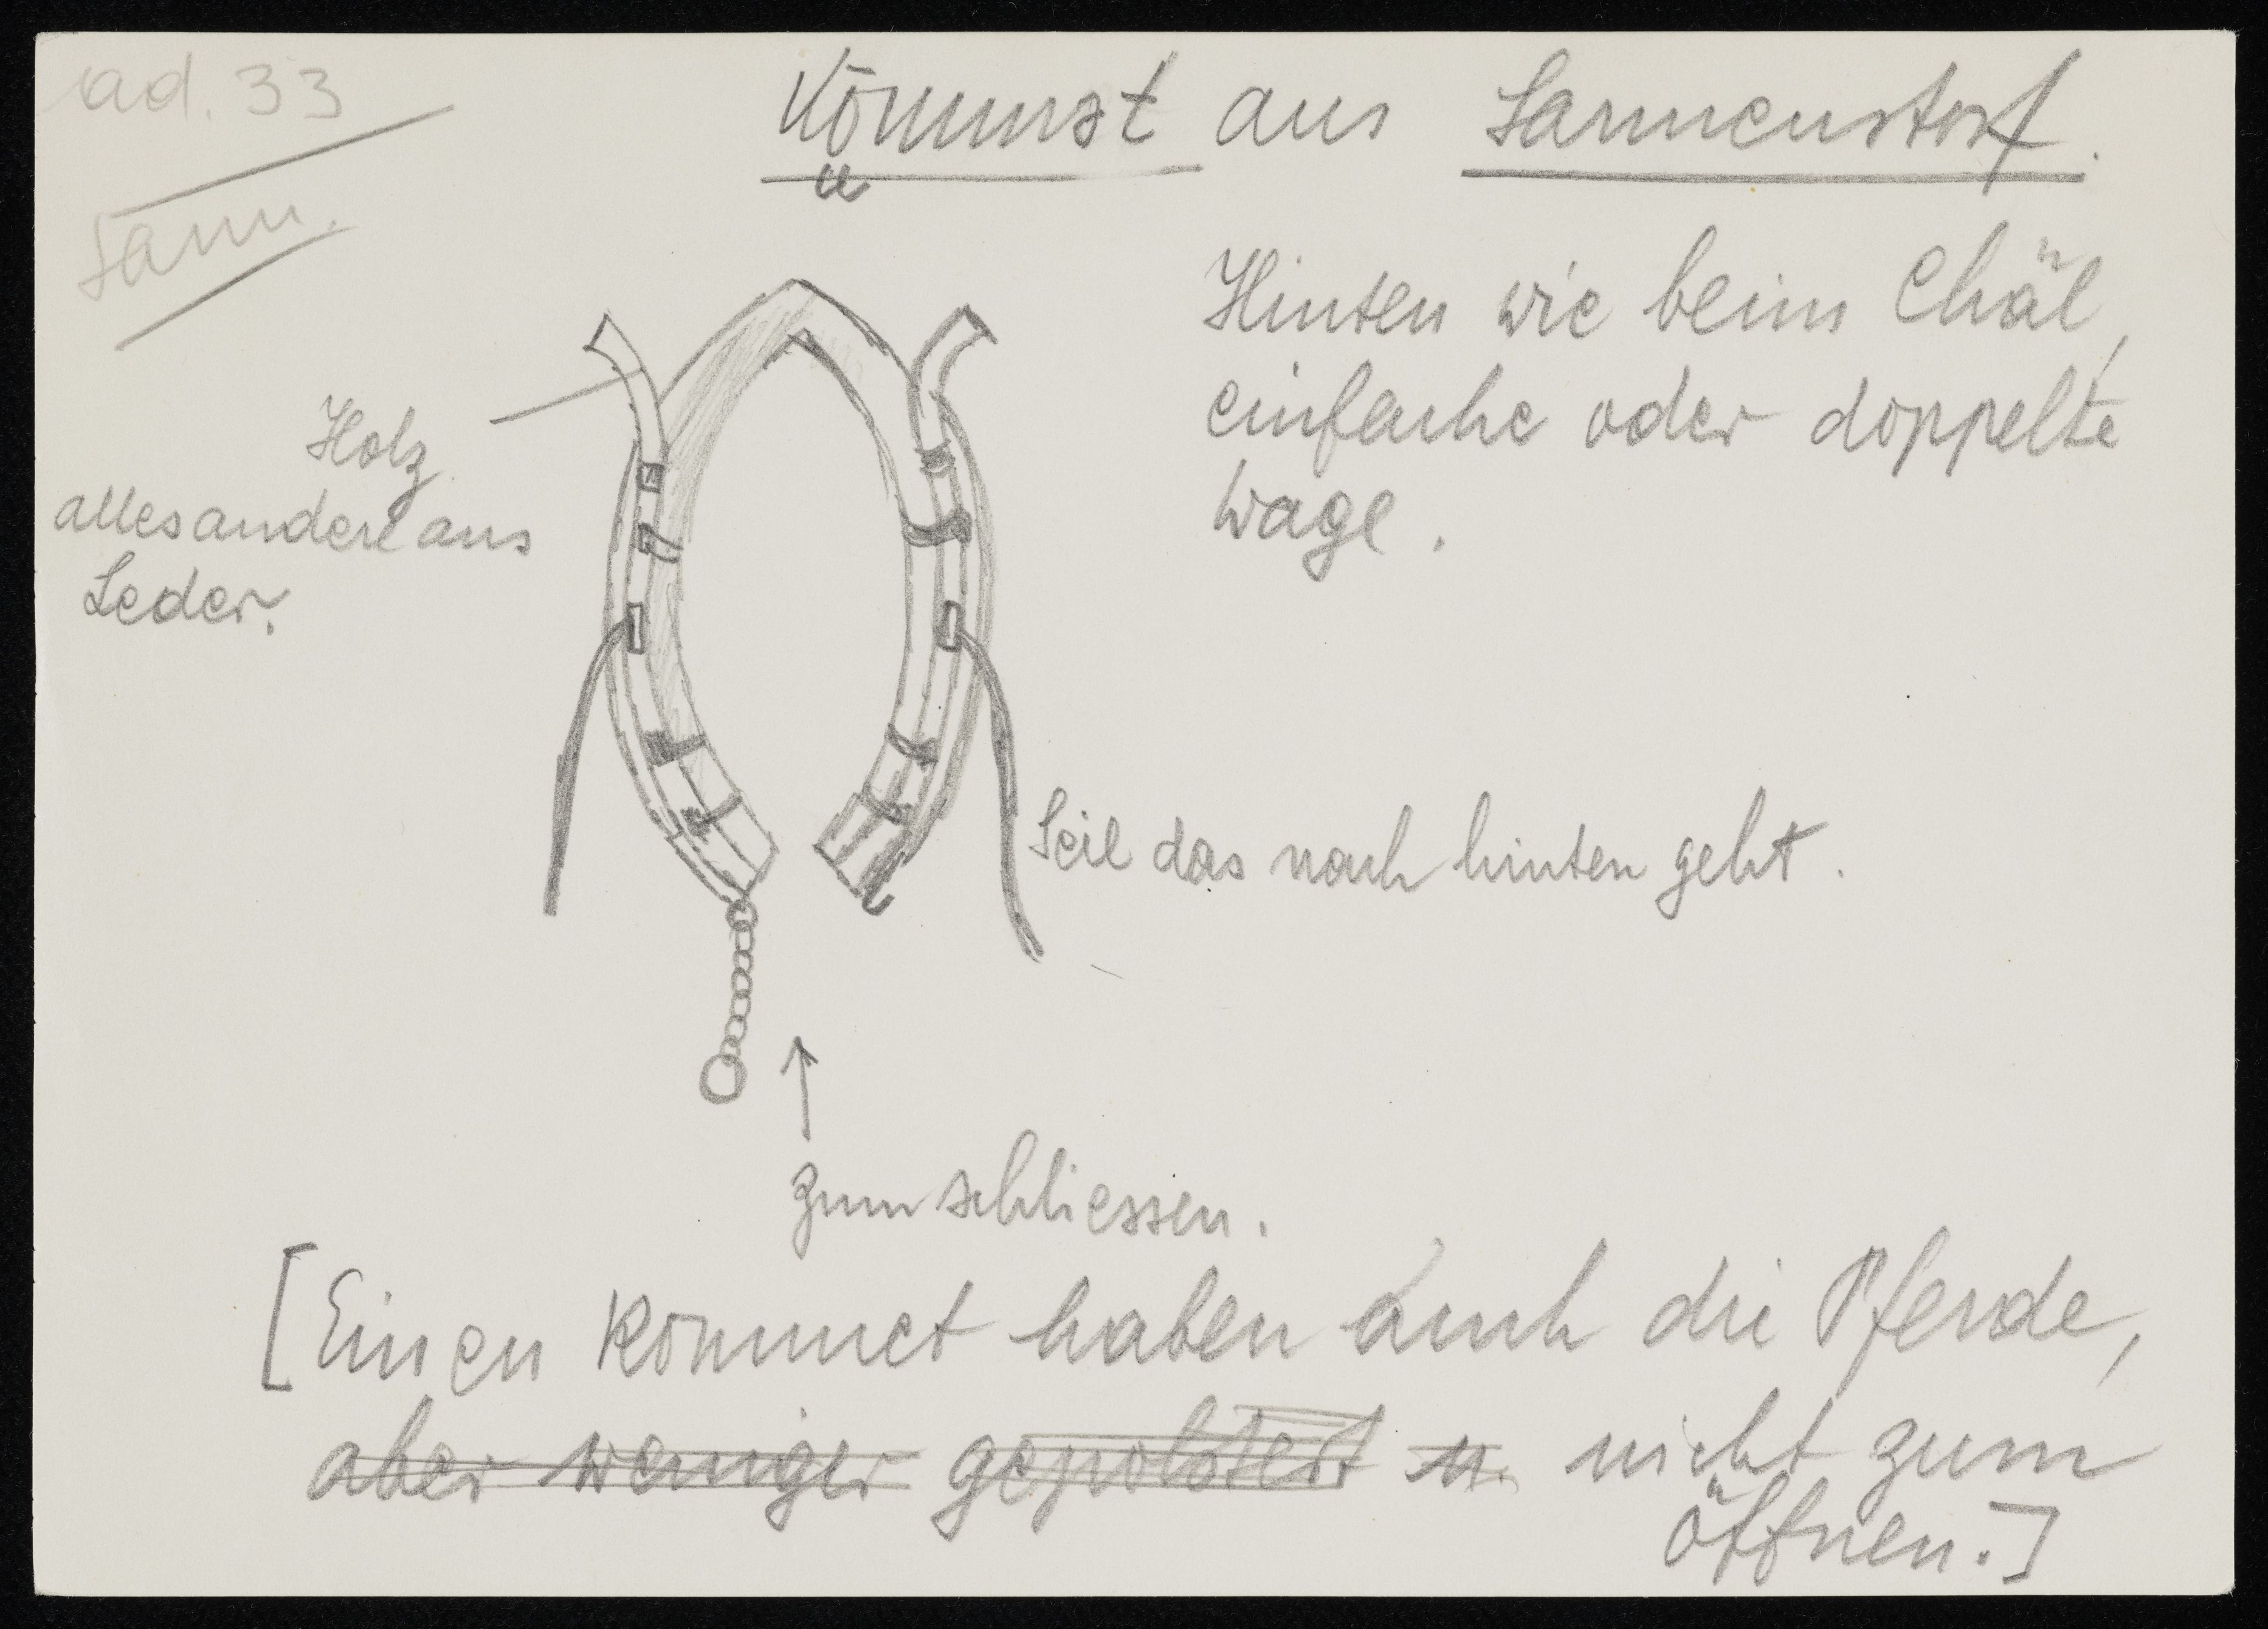 ad. 33
Sarm.
Kōmmət aus Sarmenstorf.
u
Hinten wie beim Chäl,
einfache oder doppelte
Wage.
Holz
alles andere aus
Leder.
Seil das nach hinten geht.
zum schliessen.
[Einen Kommet haben auch die Pferde,
aber weniger gepolstert u. nicht zum
öffnen.]